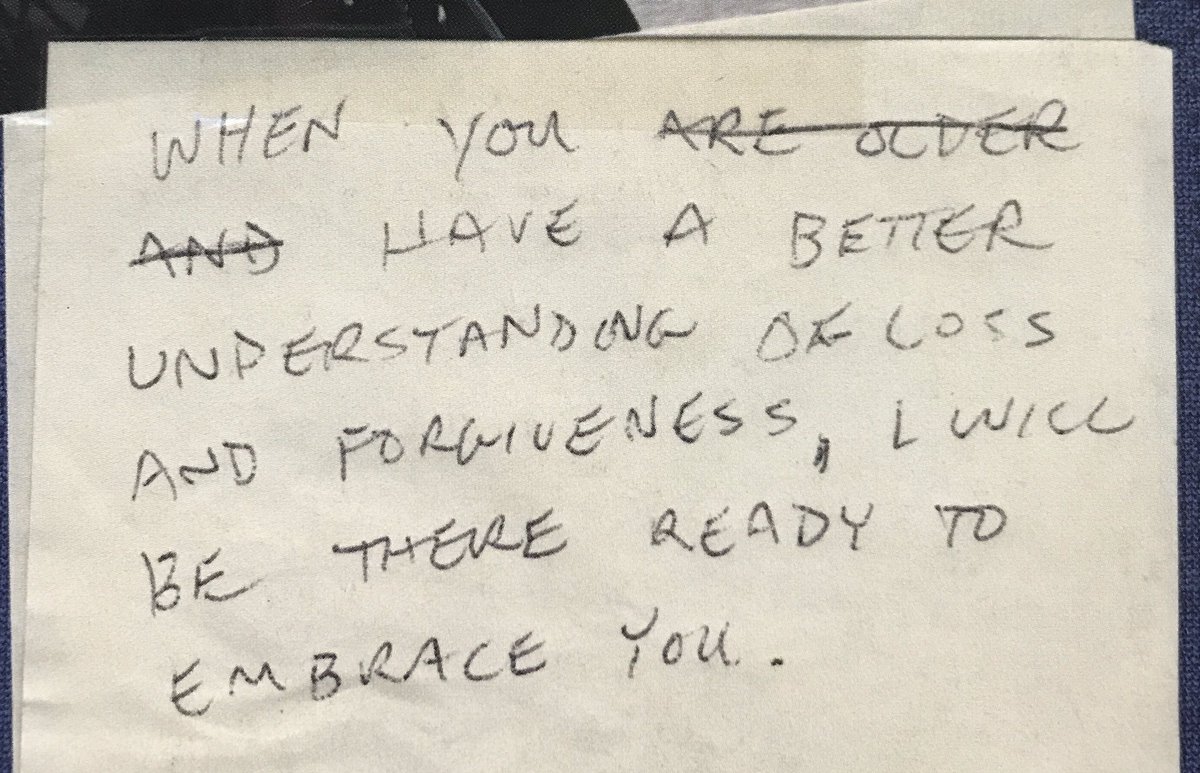 WHEN YOU ARE OLDER
AND HAVE A BETTER
UNDERSTANDING OF LOSS
AND FORGIVENESS, I WILL
BE THERE READY TO
EMBRACE YOU.